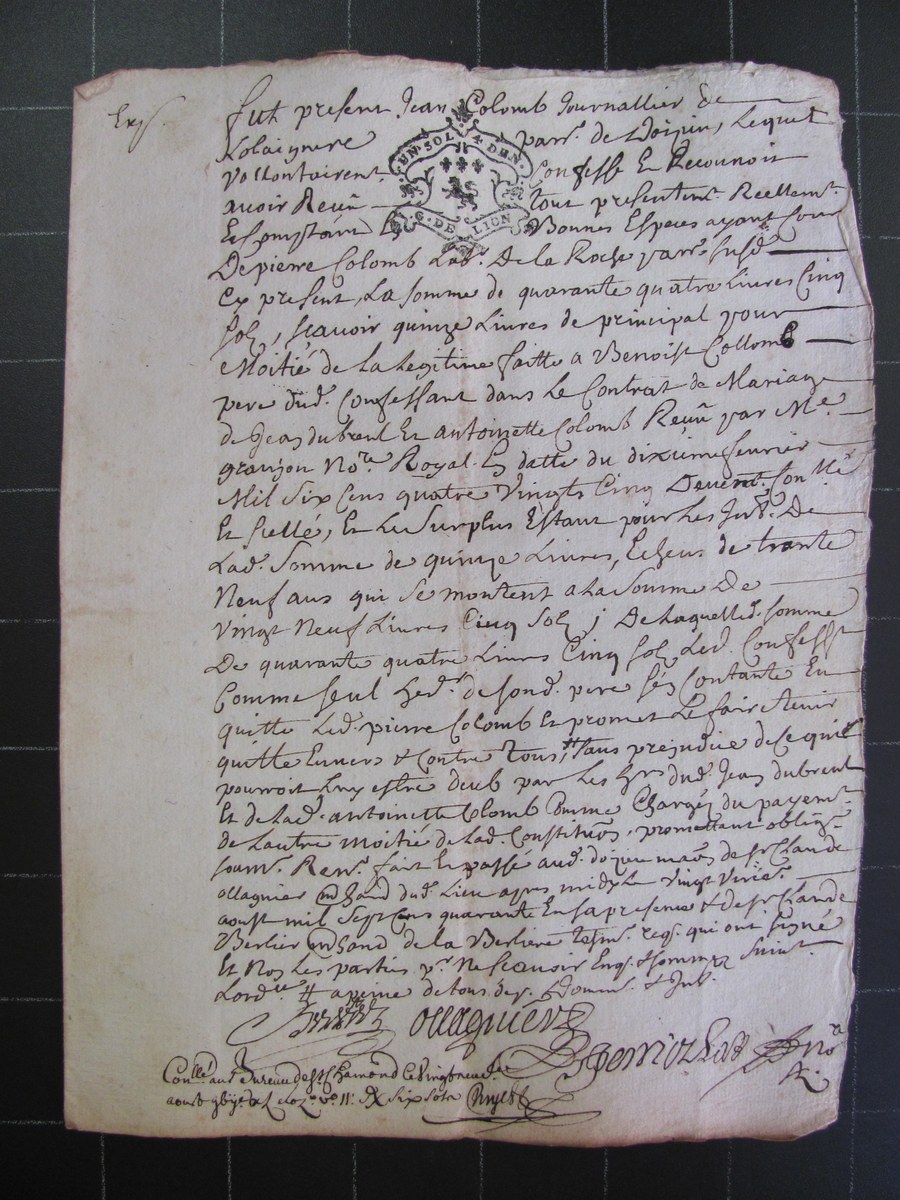 fut present Jean Colomb Journallier de
parr. de Doizieu, Lequel
vollontairemt. Confesse Et Reconnoit
avoir Reçû tout presentemt. Reellemt.
Bonnes Especes ayant Cour
UN SOL 4 DEN
G. DE LION
De pierre Colomb Lab. de la Roche parr. susd.
Cy present, La somme de quarante quatre Livres Cinq
solz, sçavoir quinze Livres de principal pour
Moitié de La Legitime faitte a Benoist Collomb
pere dud. Confessant dans Le Contrat de Mariage
de Jean dubreul Et antoinette Colomb Reçû par Me.
granjon Nore. Royal En datte du dixieme fevrier
Mil six Cens quatre Vingts Cinq Devent. Con
Et sellé, Et Le Surplus Estant pour Les Int. De
Lad. Somme de quinze Livres, Echeus de trante
Neuf ans qui se montent a la somme De
Vingt Neuf Livres Cinq solz; De Laquelle somme
De quarante quatre Livres Cinq solz Led. Confesst.
Comme seul herr. de sond. pere s'es Contante En
quitte Led. pierre Colomb Et promet Le faire tenir
quitte Envers & Contre tous, # sans prejudice de ce qui
pourroit Luy estre deub par Les hrs dud. Jean dubreul
Et de Lad. antoinette Colomb Comme Chargés du payemt.
de Lautre moitié de Lad. Constituon. promettant oblig.
soumr. Renr. fait Et passé aud. doizieu maon de sr Claude
ollagnier mchand dud. Lieu apres midy Le vingt
aoust mil sept Cens quarante En sa presence & de sr Claude
Berlier mchand de la Berliere tesm. reqs. qui ont signé
Et Non Les parties pr. Ne sçavoir Enqs. & sommez suivt.
Lordce # a peine de tous dep. domm. & Int.
ollagnier
Conllé au Bureau de St Chamond Le vingt
aoust six sols